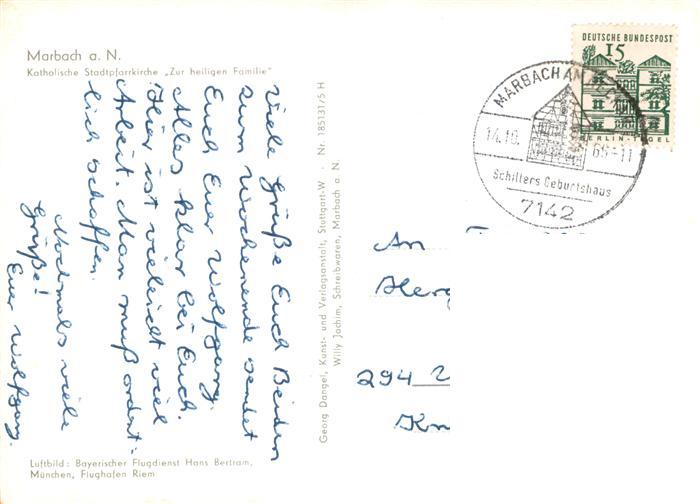 Marbach a. N.
Katholische Stadtpfarrkirche „Zur heiligen Familie"
Viele Grüße Euch Beiden
zum Wochenende sendet
Euch Euer Wolfgang.
Alles klar bei Euch.
Hier ist vieleicht viel
Arbeit. Man muß ordent-
lich schaffen.
Nochmals viele
Grüße!
Euer Wolfgang.
Luftbild: Bayerischer Flugdienst Hans Bertram,
München, Flughafen Riem
Georg Dangel, Kunst- und Verlagsanstalt, Stuttgart-W · Nr. 185131/5 H
Willy Jochim, Schreibwaren, Marbach a. N.
DEUTSCHE BUNDESPOST
15
BERLIN-TEGEL
MARBACH AM
14.10.
66-11
Schillers Geburtshaus
7142
An
294